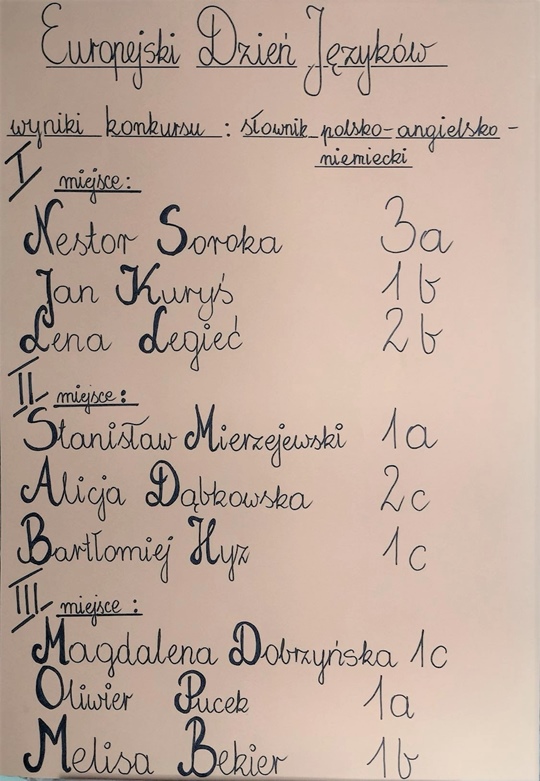 Europejski Dzień Języków
wyniki konkursu : słownik polsko-angielsko-
niemiecki
I miejsce:
Nestor Soroka 3a
Jan Kuryś 1b
Lena Legieć 2b
II miejsce:
Stanisław Mierzejewski 1a
Alicja Dąbkowska 2c
Bartłomiej Hyz 1c
III miejsce:
Magdalena Dobrzyńska 1c
Oliwier Pucek 1a
Melisa Bekier 1b